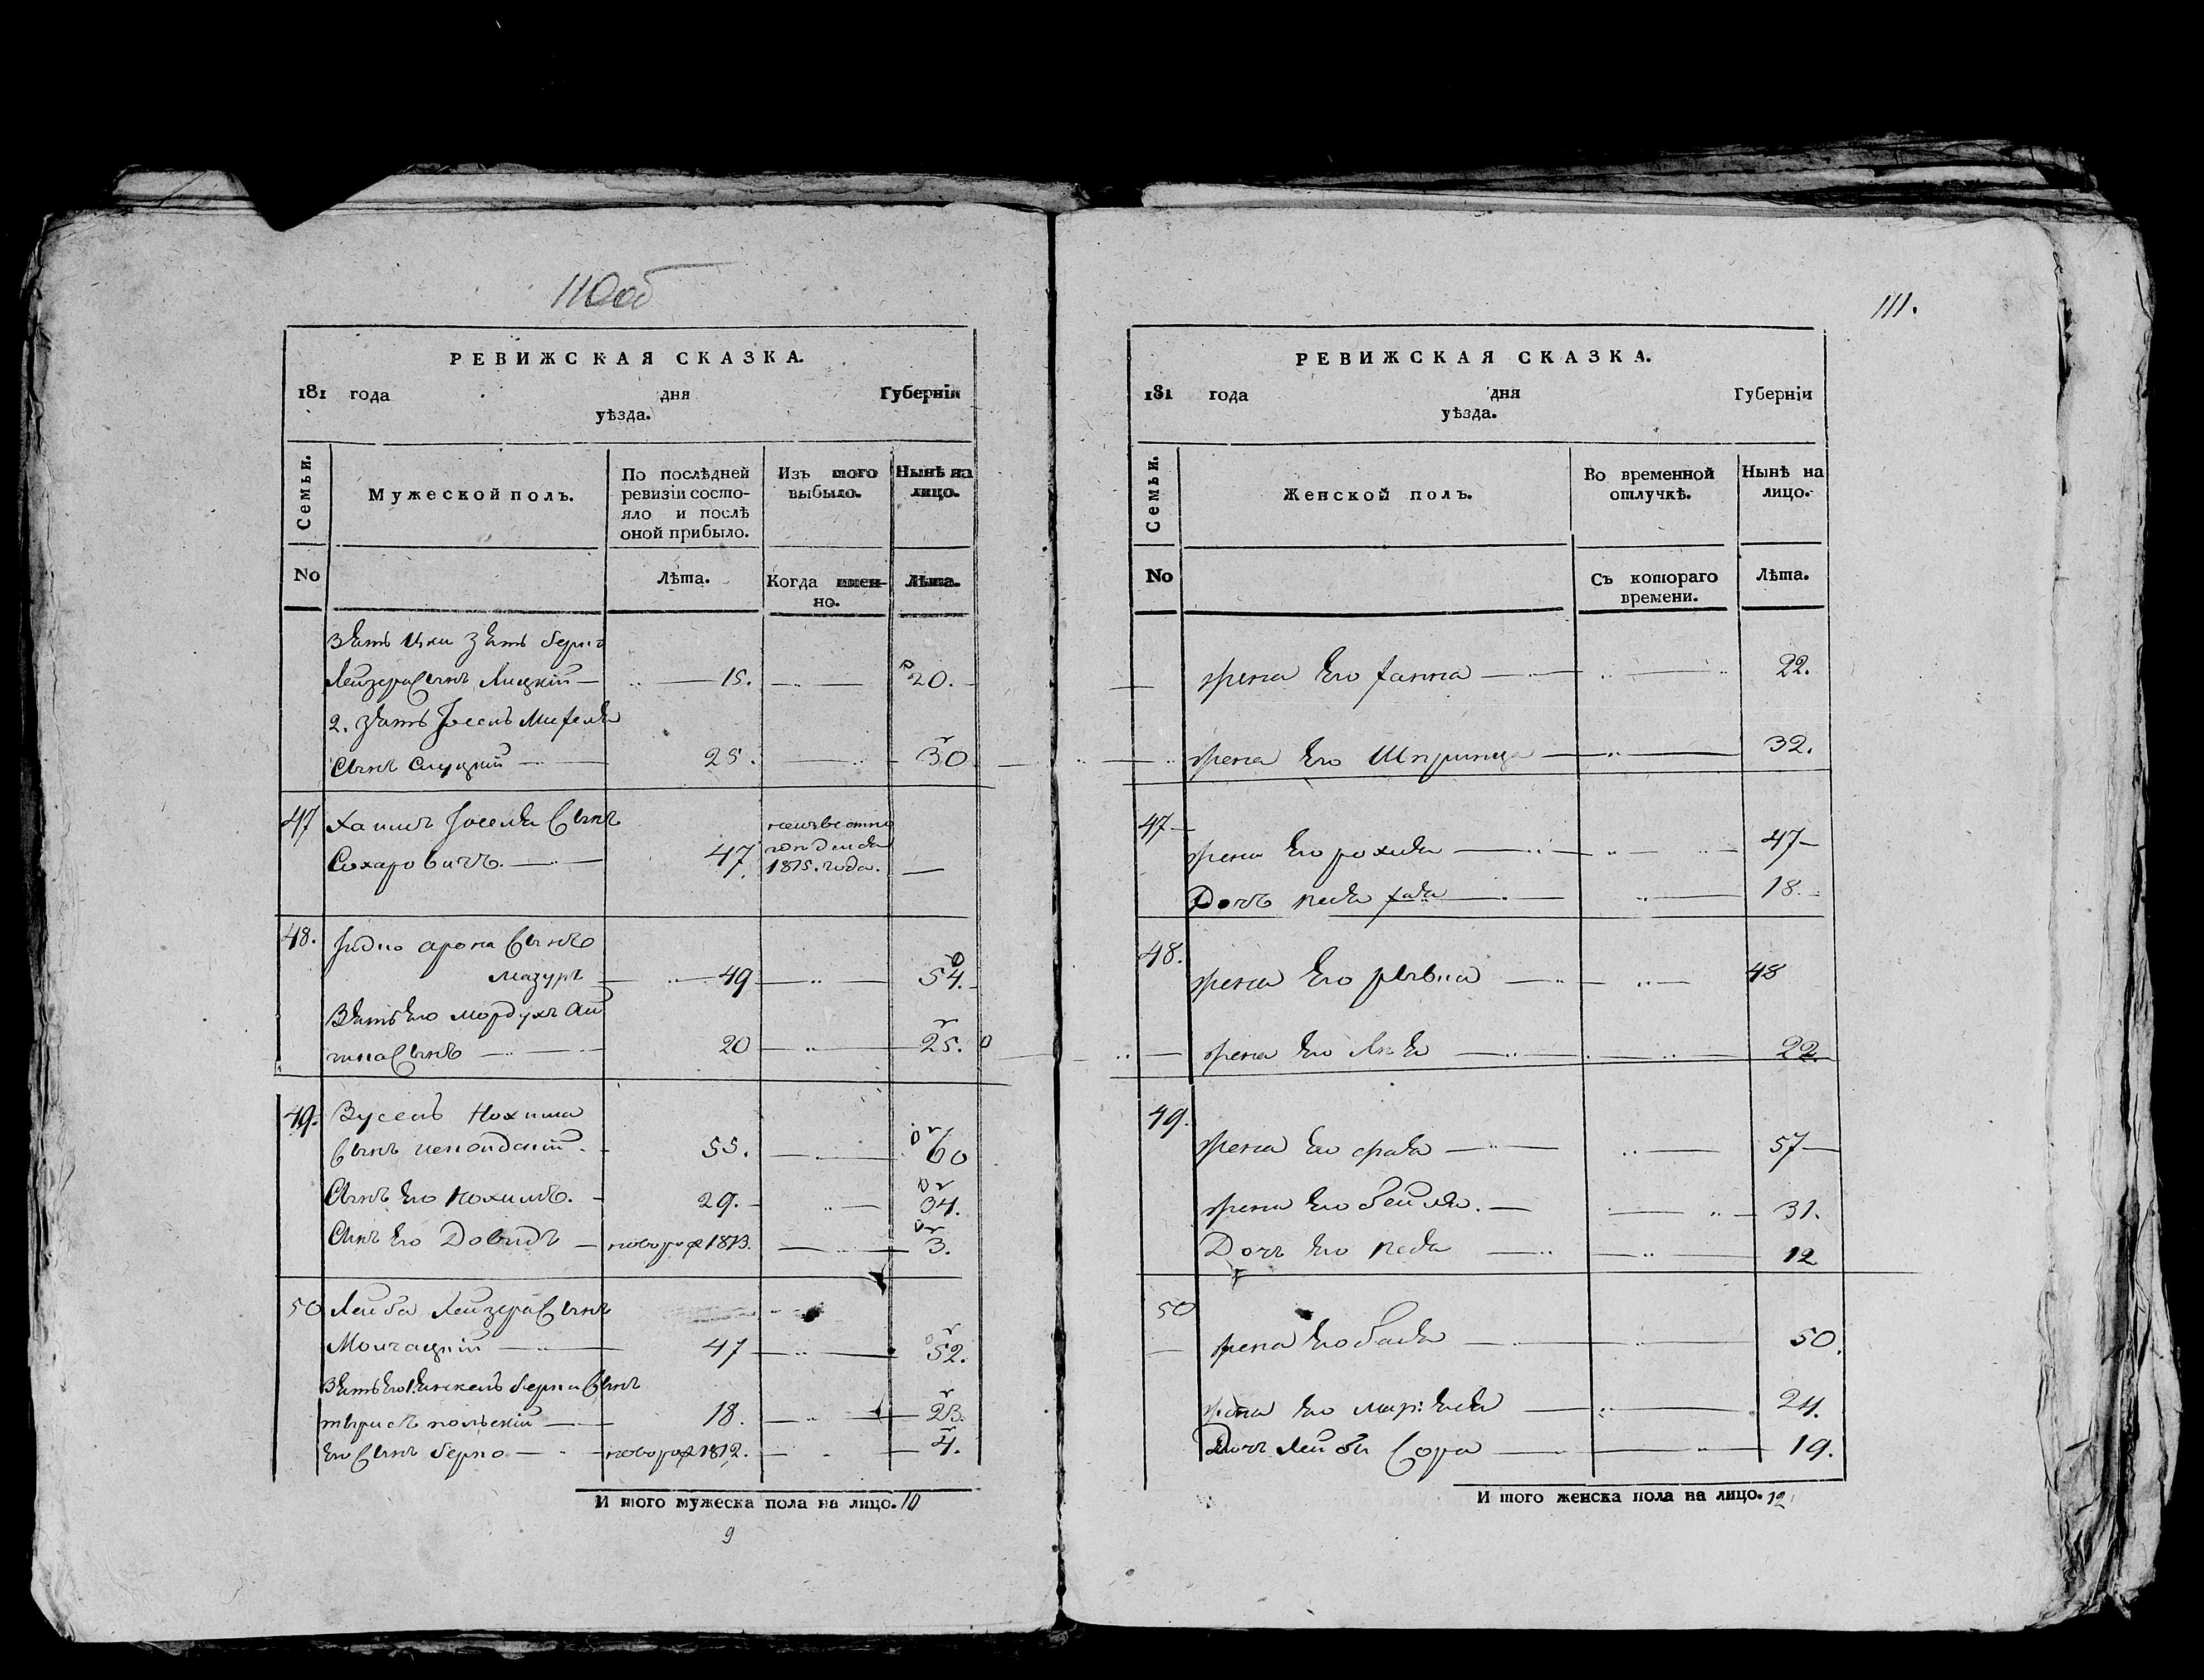 110об
РЕВИЖСКАЯ СКАЗКА.
181 года дня Губернїи
уѣзда.
Семьи.
Мужеской полъ.
По послѣдней ревизїи состо-яло и послѣ оной прибыло.
Изъ того выбыло.
Нынѣ на лицо.
No
Лѣта.
Когда имен-но.
Лѣта.
Зять Ицки Зять берко
Лейзера Сынъ Лицкїй 15. 20.
2. Зять Іосель
Сынъ Слуцкїй 25. 30
47 Хаимъ Іоселя Сынъ
Сохаровичъ. 47. неизвестно
1815. года.
48. арона Сынъ
мазуръ 49 54.
Зять Его мордухъ
Сынъ 20 25.
49. Зусель Нохима
Сынъ 55. 60
Сынъ Его Нохимъ. 29. 34.
Сынъ Его Довидъ новорож 1813. 3.
50 Лейба Лейзера Сынъ
Молчацкїй 47 52.
Зять Его Янкель берки Сынъ
польскїй 18. 23.
Его Сынъ берко новорож 1812. 4.
И того мужеска пола на лицо. 10
9
111.
РЕВИЖСКАЯ СКАЗКА.
181 года дня Губернїи
уѣзда.
Семьи.
Женской полъ.
Во временной отлучкѣ.
Нынѣ на лицо.
No
Съ котораго времени.
Лѣта.
жена Его ханна 22.
жена Его Шпринца 32.
47 жена Его рохля 47
Дочь 18.
48. жена Его рывка 48
жена Его 22.
49. жена Его 57
жена Его бейля. 31.
Дочь Его 12
50 жена Его бася 50.
жена Его 24.
Дочь Лейбы Сора 19.
И того женска пола на лицо. 12